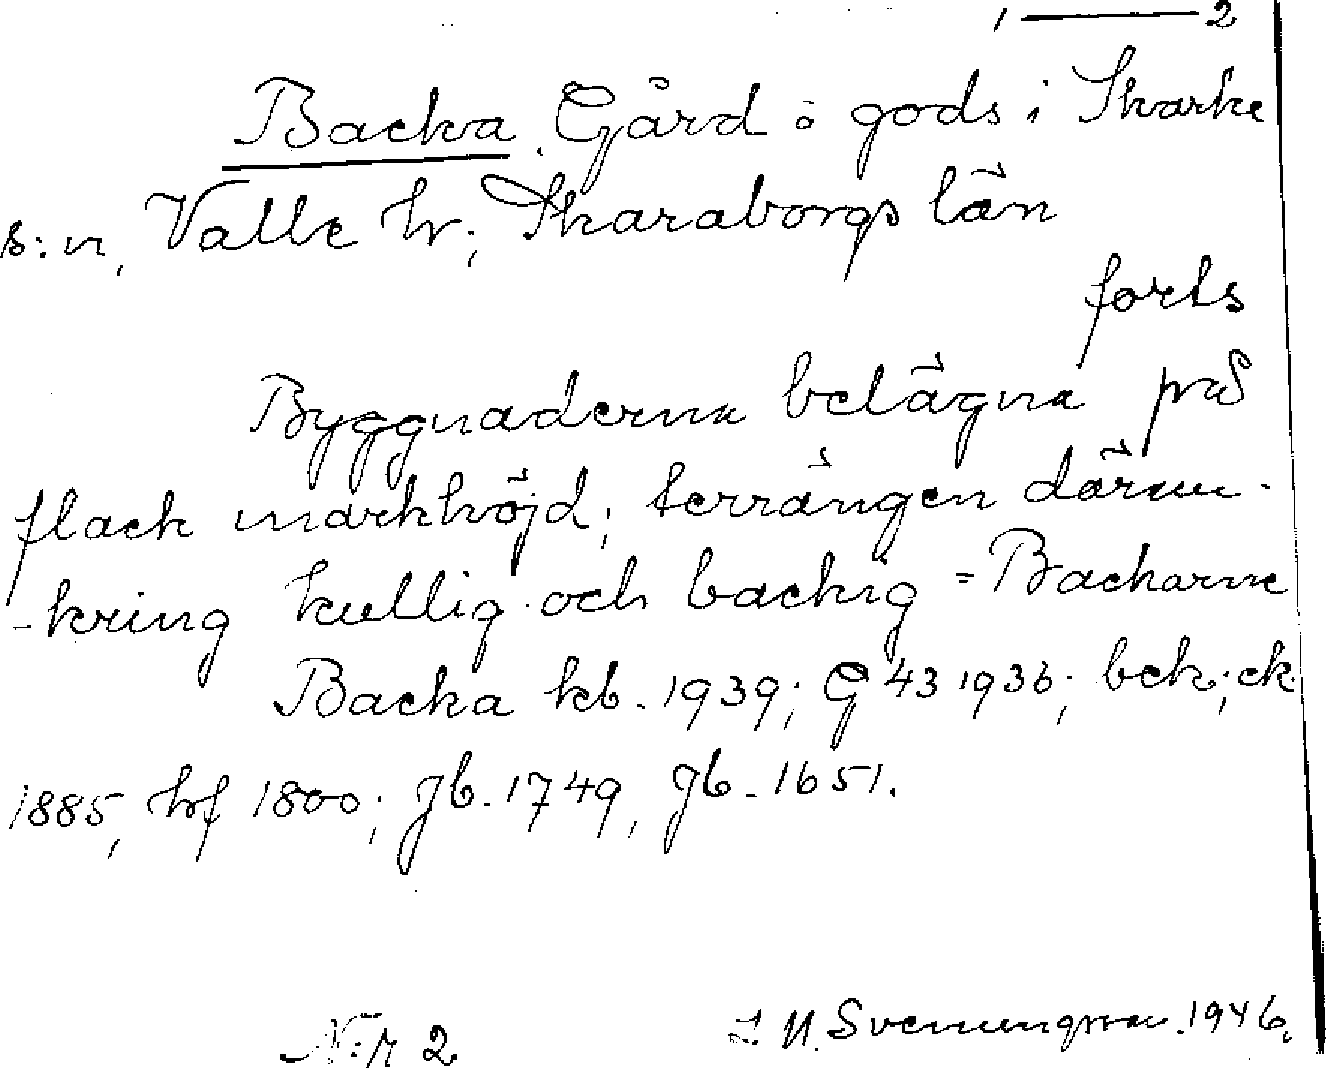 1 — 2
Backa. Gård o gods i Skarke
s:n, Valle hr; Skaraborgs län
forts
Byggnaderna belägna på
flack markhöjd; terrängen därom-
-kring kullig och backig = Backarne
Backa kb. 1939; G 43 1936; bek; ck
1885, hf 1800; jb. 1749, jb. 1651.
N:r 2
S. N. Svenungsson. 1946.